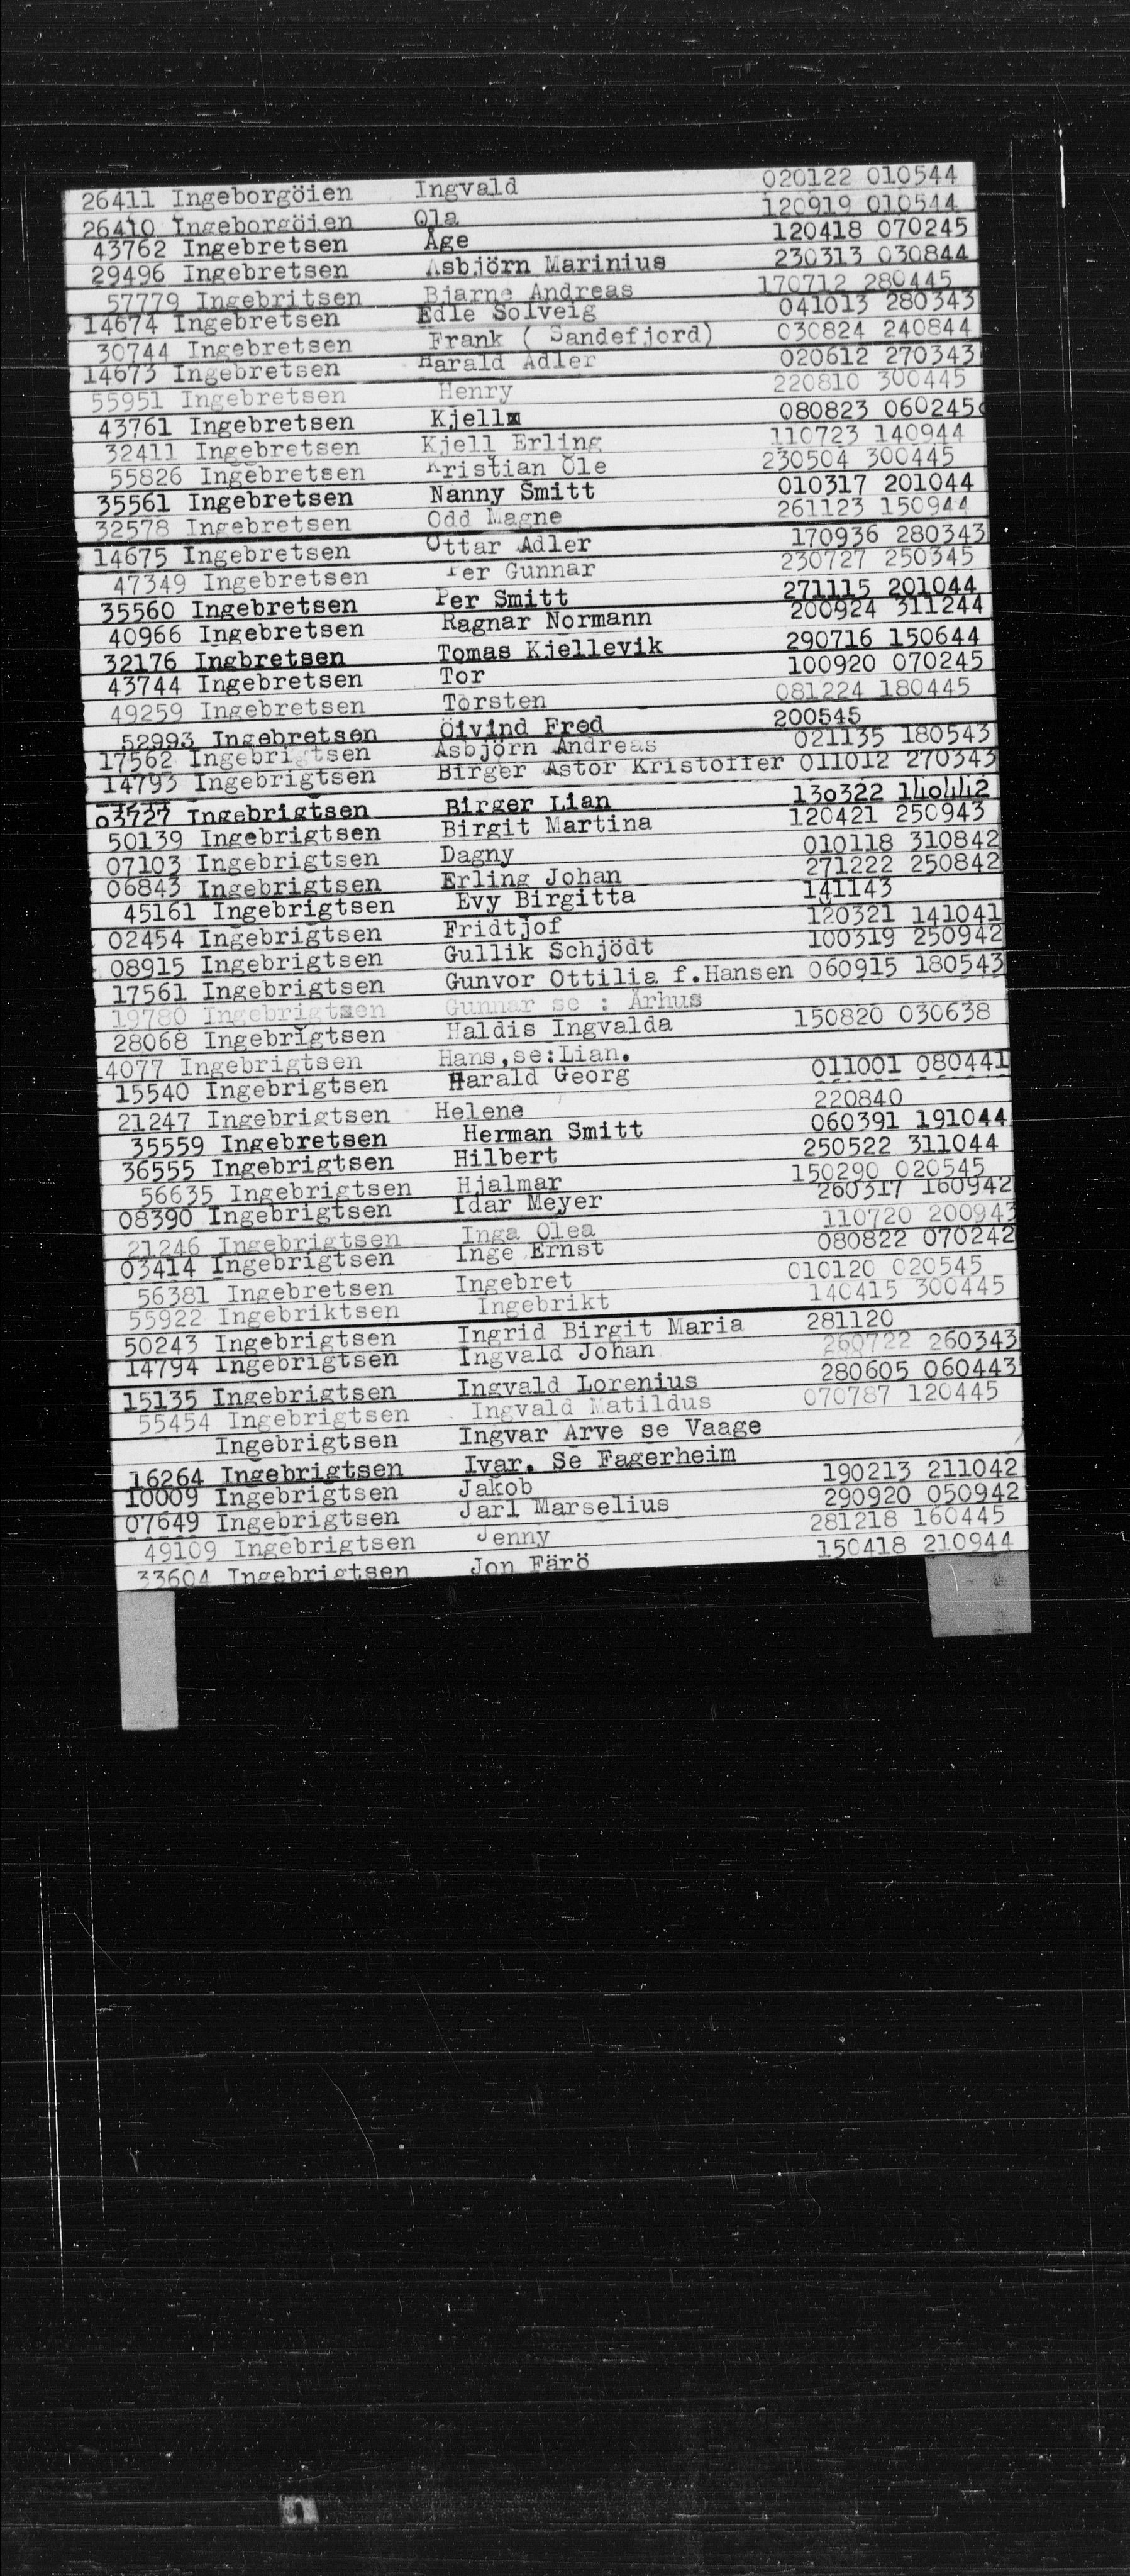 26411 Ingeborgöien Ingvald 020122 010544
26410 Ingeborgöien Ola 120919 010544
43762 Ingebretsen Åge 120418 070245
29496 Ingebretsen Asbjörn Marinius 230313 030844
57779 Ingebritsen Bjarne Andreas 170712 280445
14674 Ingebretsen Edle Solveig 041013 280343
30744 Ingebretsen Frank ( Sandefjord) 030824 240844
14673 Ingebretsen Harald Adler 020612 270343
55951 Ingebretsen Henry 220810 300445
43761 Ingebretsen Kjell 080823 060245
32411 Ingebretsen Kjell Erling 110723 140944
55826 Ingebretsen Kristian Ole 230504 300445
35561 Ingebretsen Nanny Smitt 010317 201044
32578 Ingebretsen Odd Magne 261123 150944
14675 Ingebretsen Ottar Adler 170936 280343
47349 Ingebretsen Per Gunnar 230727 250345
35560 Ingebretsen Per Smitt 271115 201044
40966 Ingebretsen Ragnar Normann 200924 311244
32176 Ingbretsen Tomas Kjellevik 290716 150644
43744 Ingebretsen Tor 100920 070245
49259 Ingebretsen Torsten 081224 180445
52993 Ingebretsen Öivind Fred 200545
17562 Ingebrigtsen Asbjörn Andreas 021135 180543
14793 Ingebrigtsen Birger Astor Kristoffer 011012 270343
03727 Ingebrigtsen Birger Lian 130322 140442
50139 Ingebrigtsen Birgit Martina 120421 250943
07103 Ingebrigtsen Dagny 010118 310842
06843 Ingebrigtsen Erling Johan 271222 250842
45161 Ingebrigtsen Evy Birgitta 141143
02454 Ingebrigtsen Fridtjof 120321 141041
08915 Ingebrigtsen Gullik Schjödt 100319 250942
17561 Ingebrigtsen Gunvor Ottilia f.Hansen 060915 180543
19780 Ingebrigtsen Gunnar se : Århus
28068 Ingebrigtsen Haldis Ingvalda 150820 030638
4077 Ingebrigtsen Hans,se:Lian.
15540 Ingebrigtsen Harald Georg 011001 080441
21247 Ingebrigtsen Helene 220840
35559 Ingebretsen Herman Smitt 060391 191044
36555 Ingebrigtsen Hilbert 250522 311044
56635 Ingebrigtsen Hjalmar 150290 020545
08390 Ingebrigtsen Idar Meyer 260317 160942
21246 Ingebrigtsen Inga Olea 110720 200943
03414 Ingebrigtsen Inge Ernst 080822 070242
56381 Ingebretsen Ingebret 010120 020545
55922 Ingebriktsen Ingebrikt 140415 300445
50243 Ingebrigtsen Ingrid Birgit Maria 281120
14794 Ingebrigtsen Ingvald Johan 260722 260343
15135 Ingebrigtsen Ingvald Lorenius 280605 060443
55454 Ingebrigtsen Ingvald Matildus 070787 120445
Ingebrigtsen Ingvar Arve se Vaage
16264 Ingebrigtsen Ivar. Se Fagerheim
10009 Ingebrigtsen Jakob 190213 211042
07649 Ingebrigtsen Jarl Marselius 290920 050942
49109 Ingebrigtsen Jenny 281218 160445
33604 Ingebrigtsen Jon Färö 150418 210944